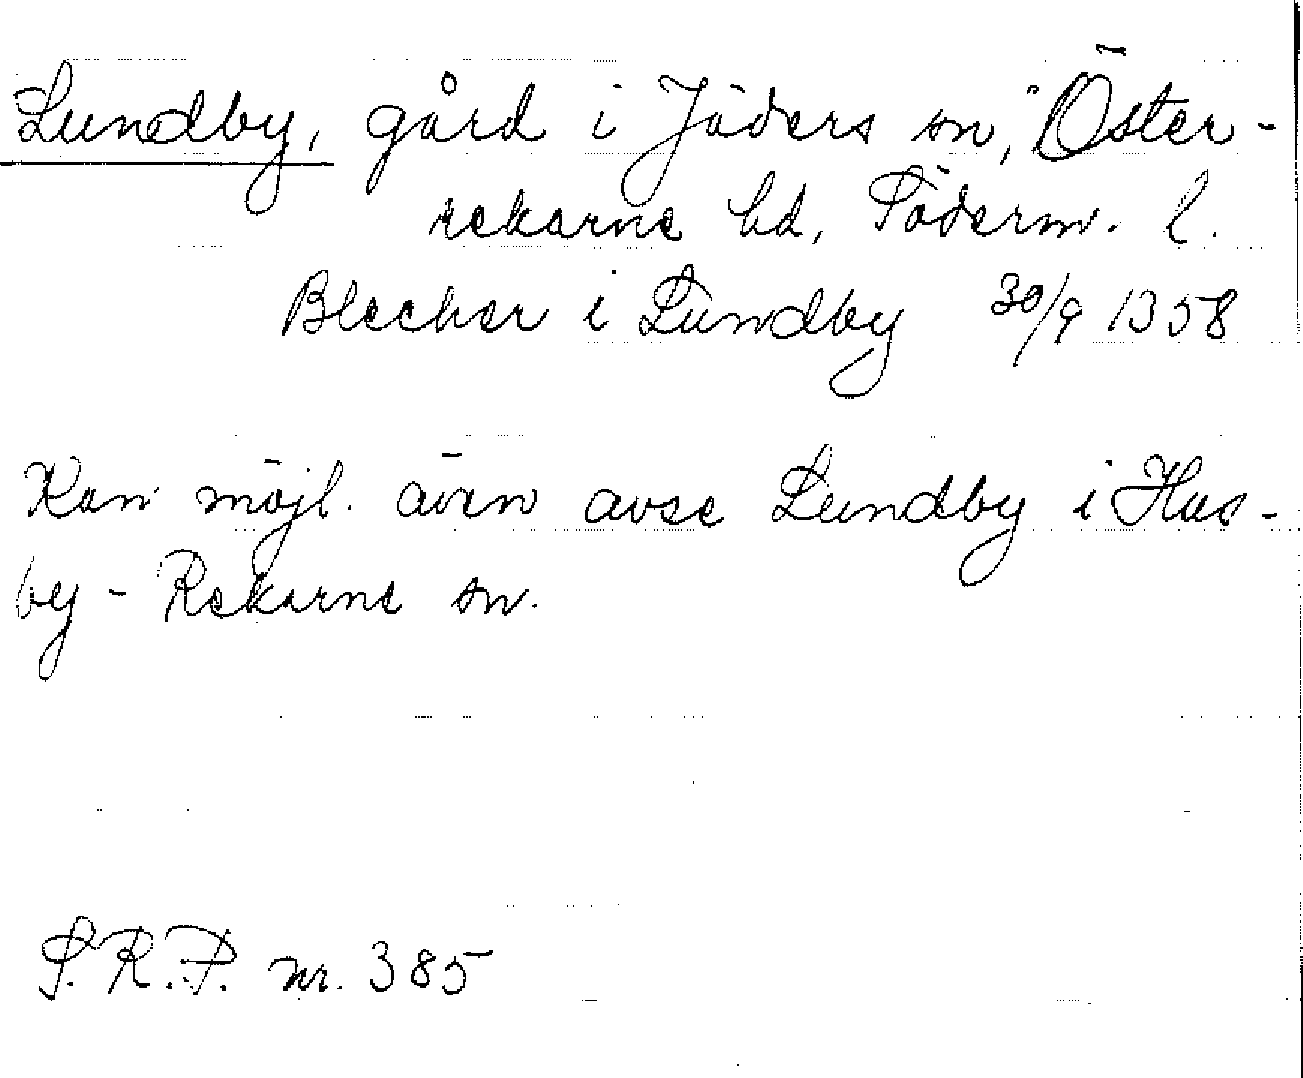 Lundby, gård i Jäders sn, Öster-
rekarne hd, Söderm. l.
Blecker i Lundby 30/9 1358
Kan möjl. även avse Lundby i Hus-
by-Rekarne sn.
S.R.P. nr. 385